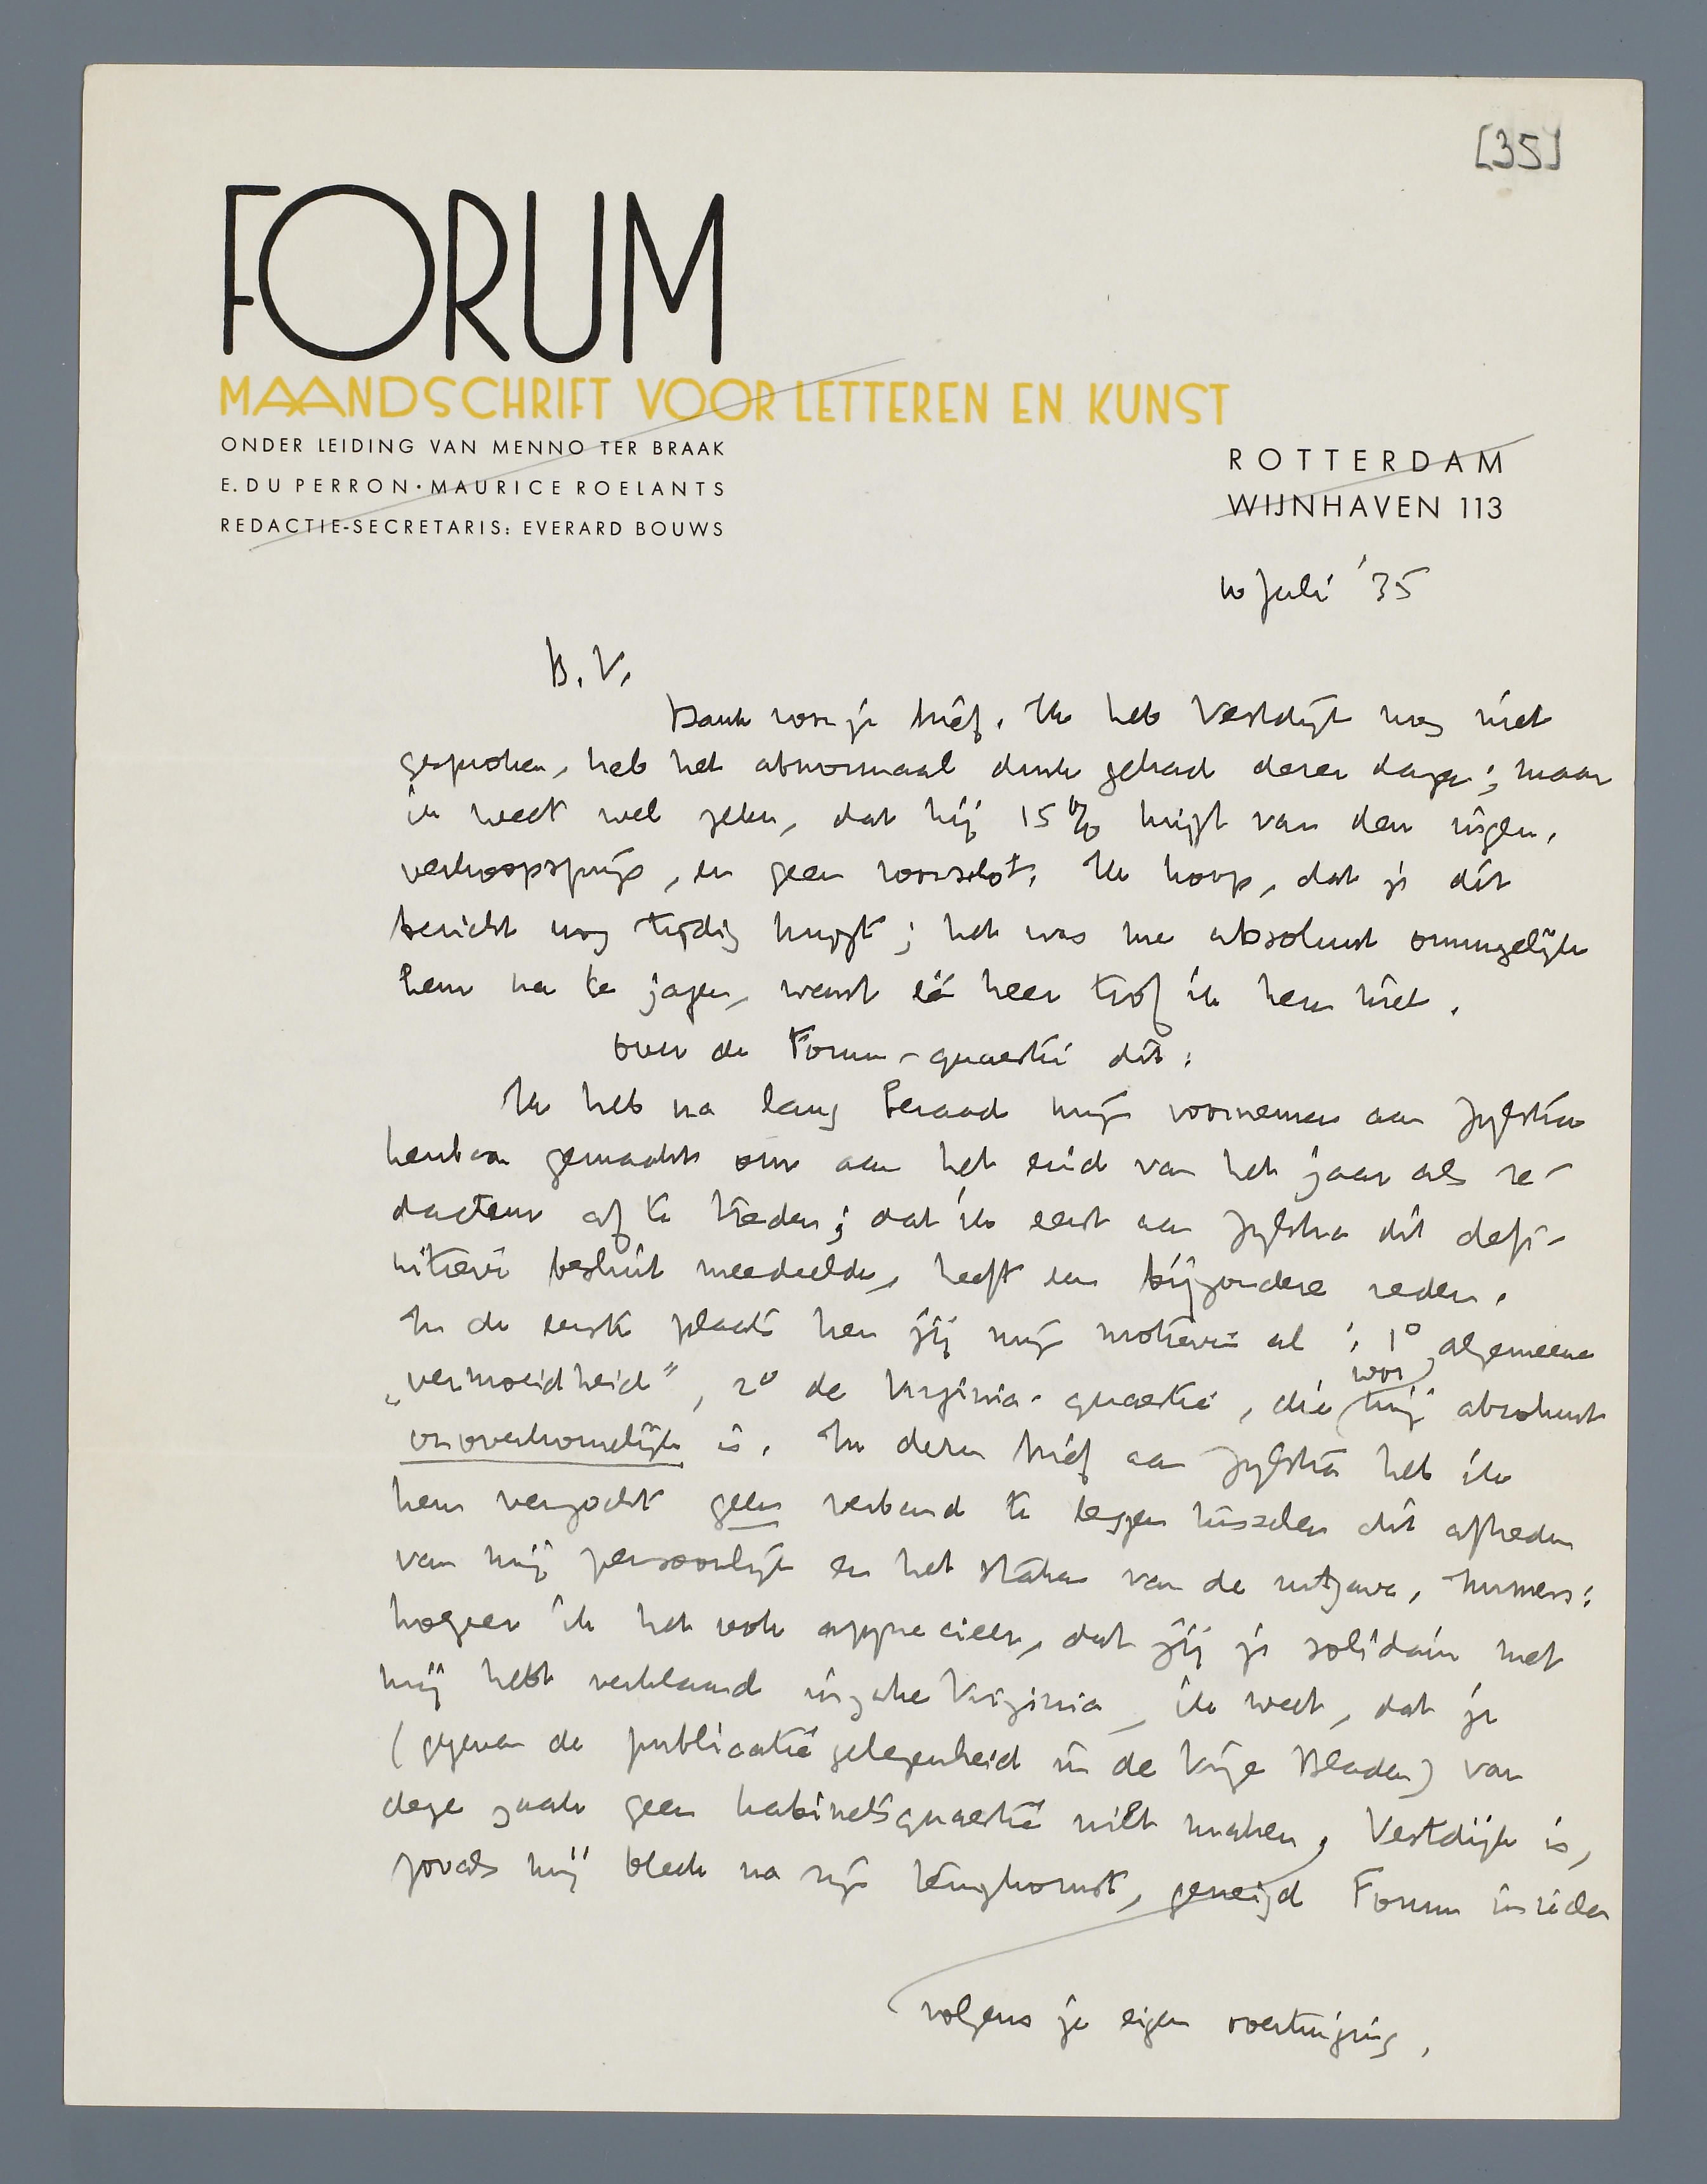 [35]
FORUM
MAANDSCHRIFT VOOR LETTEREN EN KUNST
ONDER LEIDING VAN MENNO TER BRAAK
E. DU PERRON · MAURICE ROELANTS
REDACTIE-SECRETARIS: EVERARD BOUWS
ROTTERDAM
WIJNHAVEN 113
10 Juli '35
B.V.
Dank voor je brief. Ik heb Vestdijk nog niet
gesproken, heb het abnormaal druk gehad dezer dagen; maar
ik weet wel zeker, dat hij 15% krijgt van den ingen.
verkoopsprijs, en geen voorschot. Ik hoop, dat je dit
bericht nog tijdig krijgt; het was me absoluut onmogelijk
hem na te jagen, want één keer trof ik hem niet.
Over de Forum-quaestie dit:
Ik heb na lang beraad mijn voornemen aan Zijlstra
kenbaar gemaakt om aan het eind van het jaar als re-
dacteur af te treden; dat ik eerst aan Zijlstra dit defi-
nitieve besluit meedeelde, heeft een bijzondere reden.
In de eerste plaats ken jij mijn motieven al: 1° algemeene
„vermoeidheid", 2° de Virginia-quaestie, die voor mij absoluut
onoverkomelijk is. In dezen brief aan Zijlstra heb ik
hem verzocht geen verband te leggen tusschen dit aftreden
van mij persoonlijk en het staken van de uitgave. Immers:
hoezeer ik het ook apprecieer, dat jij je solidair met
mij hebt verklaard inzake Virginia, ik weet, dat je
(gegeven de publicatiegelegenheid in de Vrije Bladen) van
deze zaak geen kabinetsquaestie wilt maken, volgens je eigen overtuiging. Vestdijk is,
zooals mij bleek na zijn terugkomst, geneigd Forum in ieder